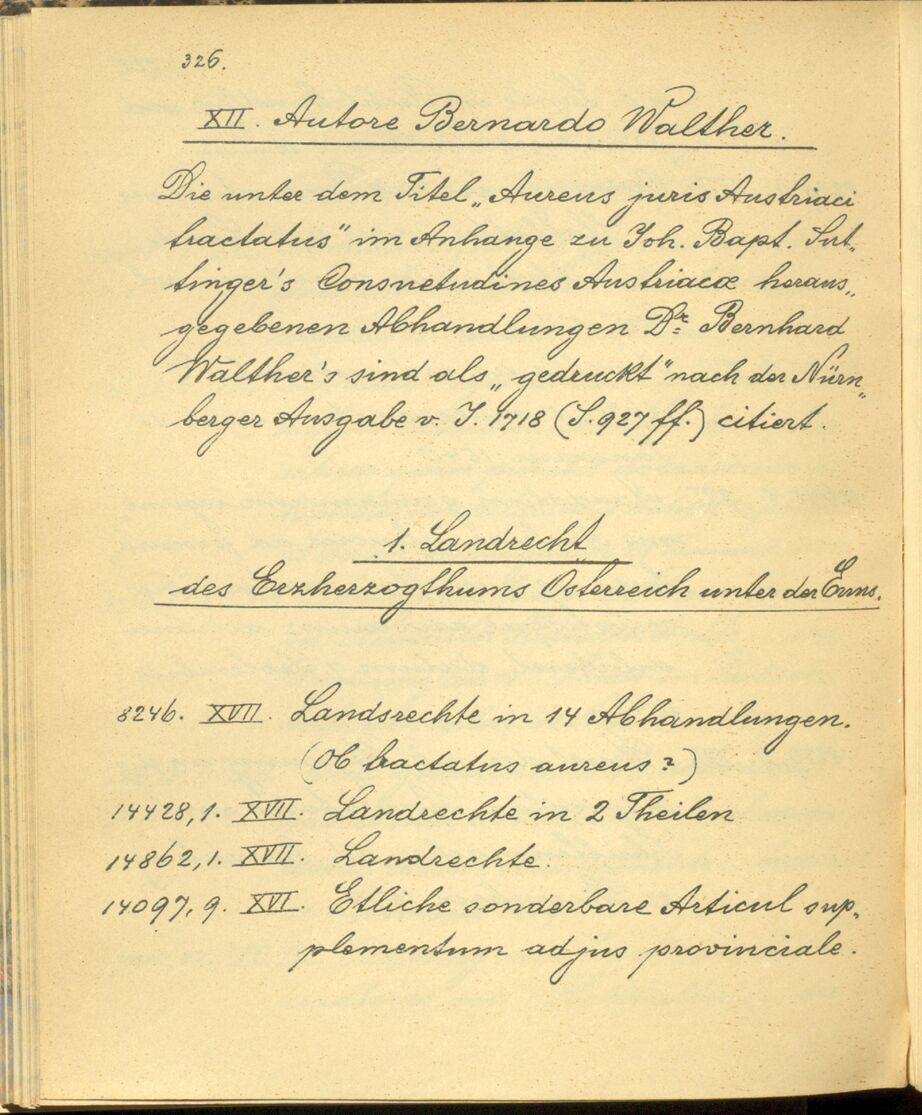 326.
XII. Autore Bernardo Walther.
Die unter dem Titel „Aureus juris Austriaci
tractatus" im Anhange zu Joh. Bapt. Sut„
tinger's Consuetudines Austriacæ heraus„
gegebenen Abhandlungen Dr. Bernhard
Walther's sind als „gedruckt" nach der Nürn„
berger Ausgabe v. J. 1718 (S. 927 ff.) citiert.
1. Landrecht
des Erzherzogthums Österreich unter der Enns.
8246. XVII. Landsrechte in 14 Abhandlungen.
(Ob tractatus aureus?)
14428,1. XVII. Landrechte in 2 Theilen
14862,1. XVII. Landrechte.
14097,9. XVI. Etliche sonderbare Articul sup„
plementum ad jus provinciale.